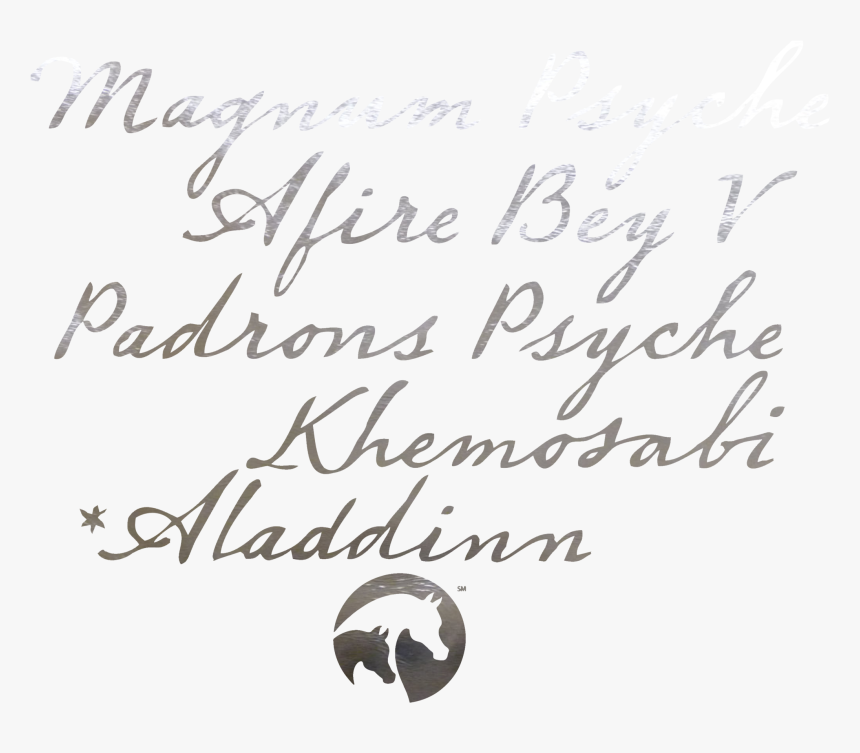 Magnum Psyche
Afire Bey V
Padrons Psyche
Khemosabi
*Aladdinn
SM